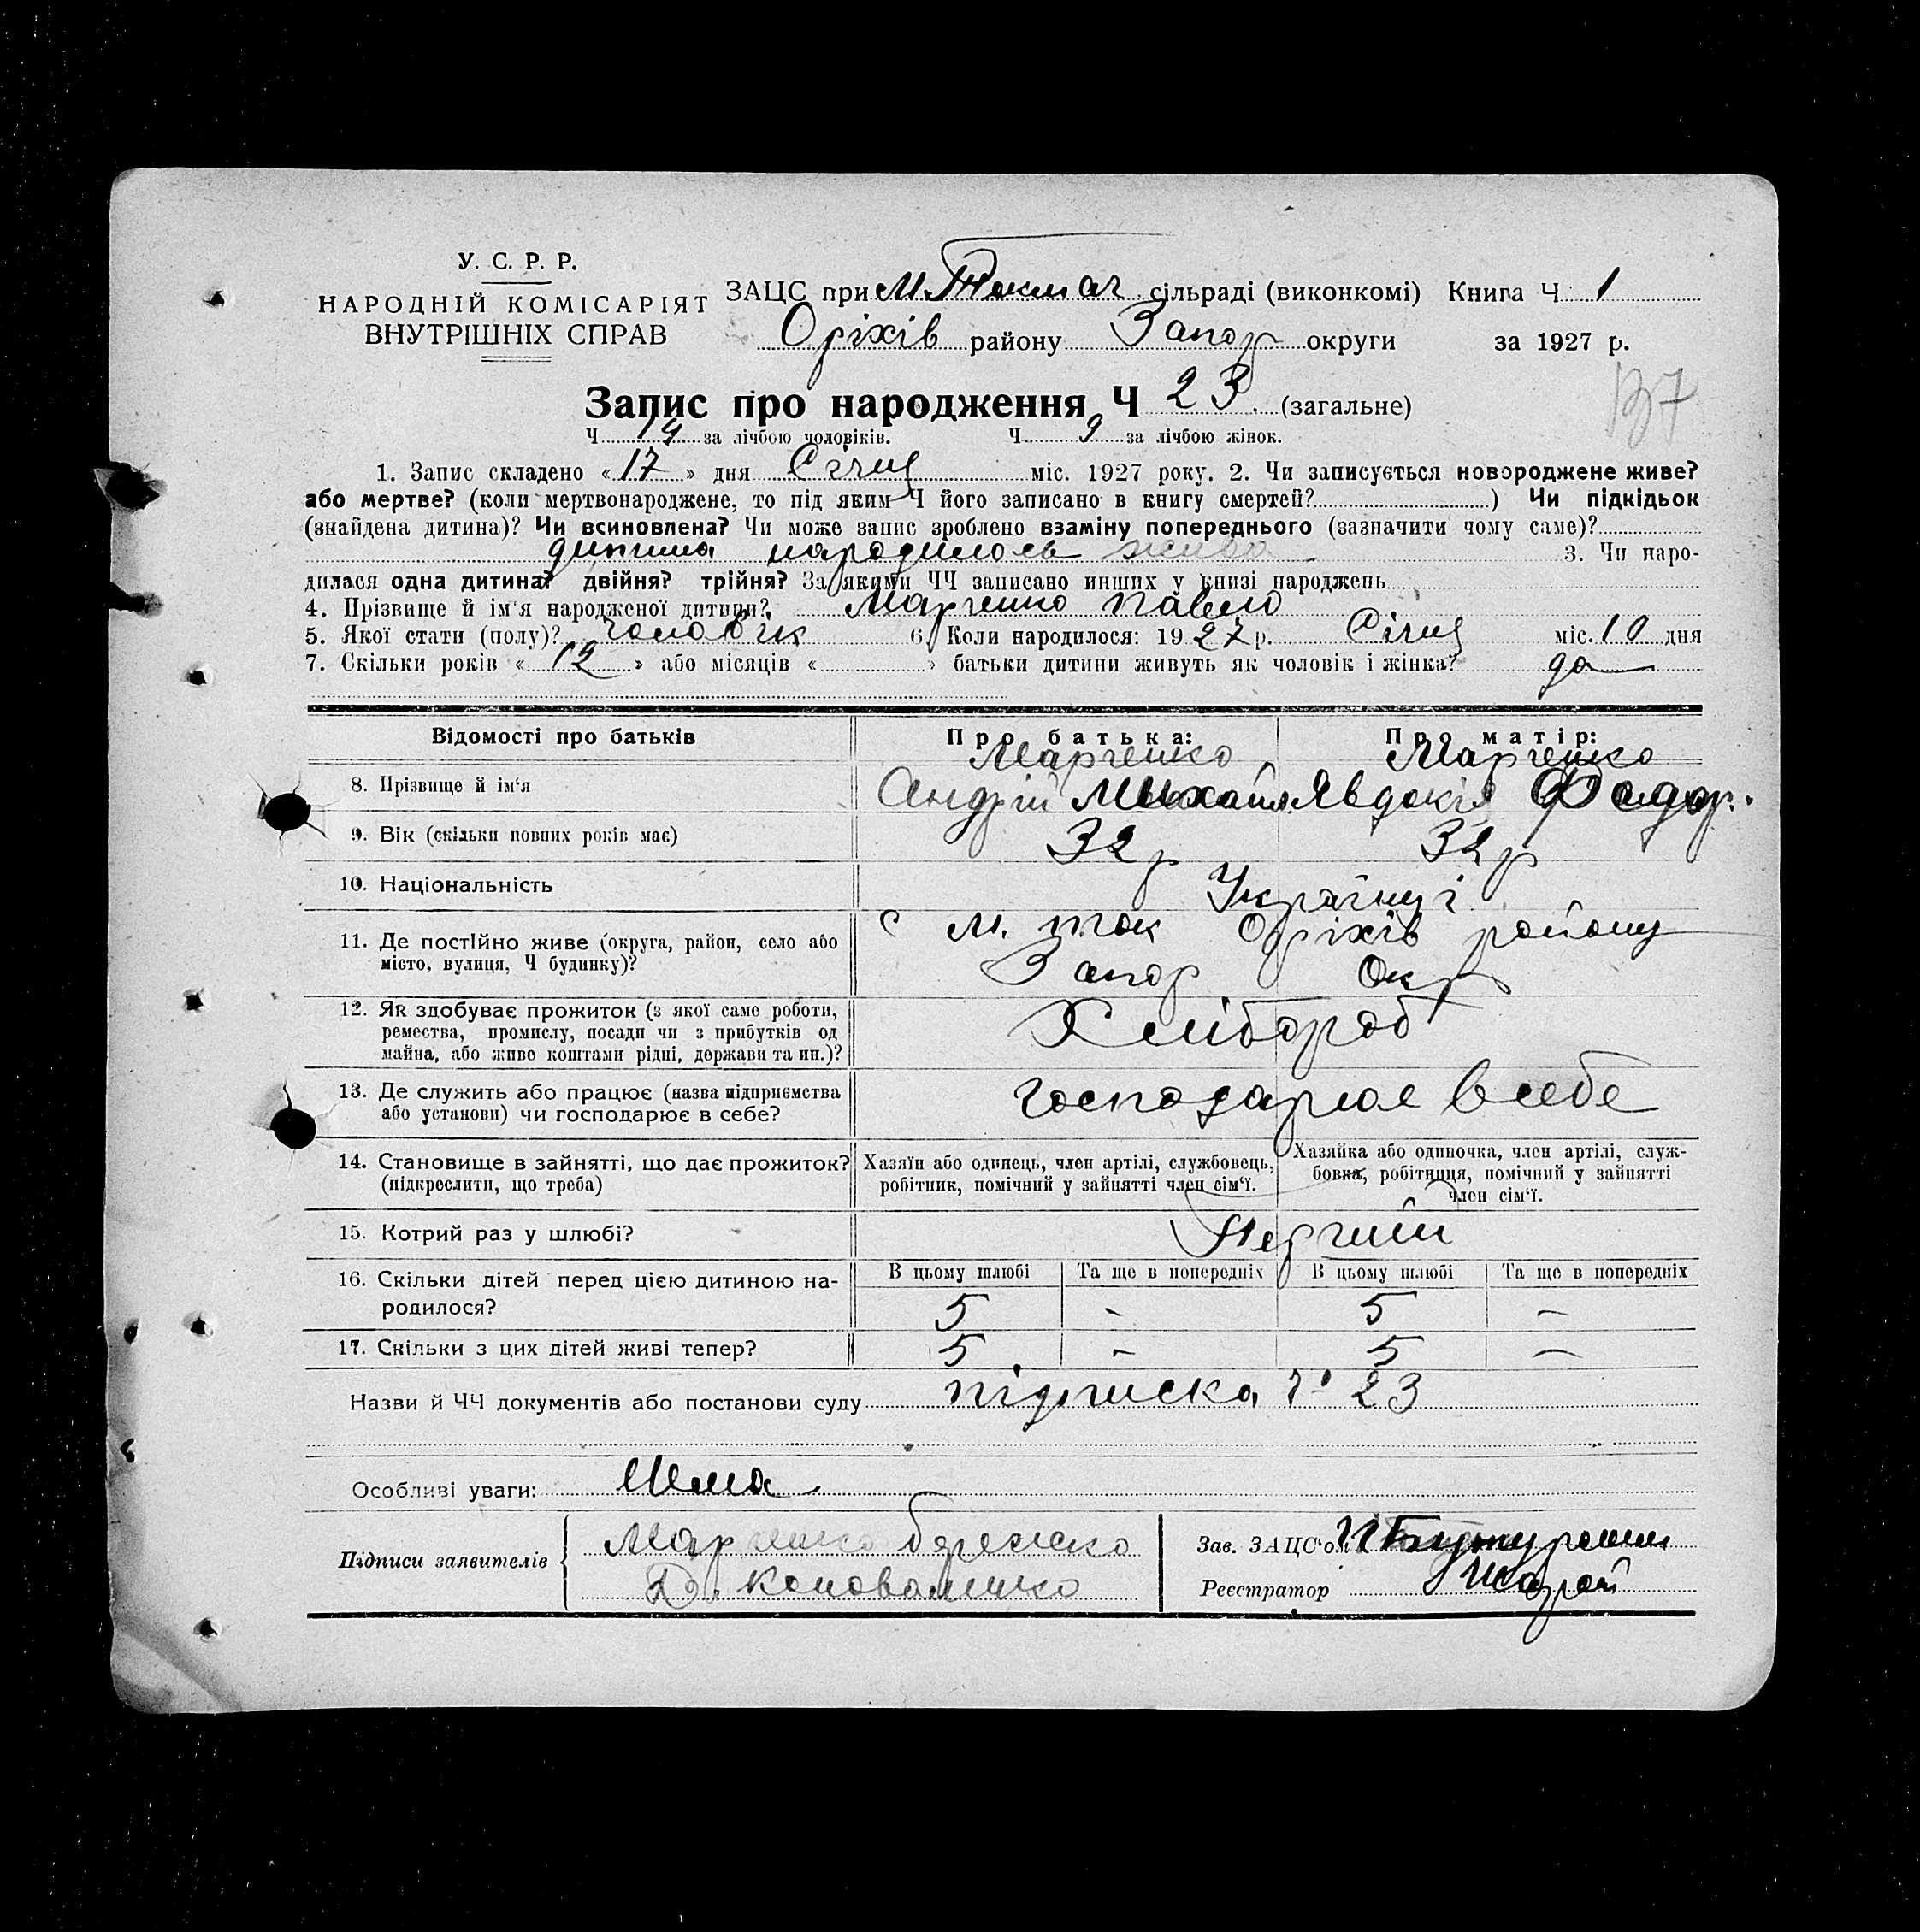 У. С. Р. Р.
НАРОДНІЙ КОМІСАРІЯТ
ВНУТРІШНІХ СПРАВ
ЗАЦС при М. Токмач сільраді (виконкомі) Книга Ч 1
Оріхів району Запор округи за 1927 р.
137
Запис про народження Ч 23 (загальне)
Ч 14 за лічбою чоловіків. Ч 9 за лічбою жінок.
1. Запис складено « 17 » дня Січня міс. 1927 року. 2. Чи записується новороджене живе?
або мертве? (коли мертвонароджене, то під яким Ч його записано в книгу смертей? ) Чи підкідьок
(знайдена дитина)? Чи всиновлена? Чи може запис зроблено взаміну попереднього (зазначити чому саме)?
дитина народилось жива 3. Чи наро-
дилася одна дитина? двійня? трійня? За якими ЧЧ записано инших у книзі народжень
4. Прізвище й ім'я народженої дитини? Марченко Павело
5. Якої стати (полу)? чоловік 6. Коли народилося: 1927 р. Січня міс. 10 дня
7. Скільки років « 12 » або місяців « » батьки дитини живуть як чоловік і жінка? да
Відомості про батьків Про батька: Про матір:
Марченко Марченко
8. Прізвище й ім'я Андрій Михайл Явдокія Федор.
9. Вік (скільки повних років має) 32 р 32 р
10. Національність Українці
11. Де постійно живе (округа, район, село або місто, вулиця, Ч будинку)?
с М. ток Оріхів району
Запор Окр
12. Як здобуває прожиток (з якої само роботи,
ремества, промислу, посади чи з прибутків од
майна, або живе коштами рідні, держави та ин.)?
Хлібороб
13. Де служить або працює (назва підприємства
або установи) чи господарює в себе?
господарює в себе
14. Становище в зайнятті, що дає прожиток?
(підкреслити, що треба)
Хазяїн або одинець, член артілі, службовець,
робітник, помічний у зайнятті член сім'ї.
Хазяйка або одиночка, член артілі, служ-
бовка, робітниця, помічний у зайнятті
член сім'ї.
15. Котрий раз у шлюбі? Перший
16. Скільки дітей перед цією дитиною на-
родилося?
В цьому шлюбі Та ще в попередніх В цьому шлюбі Та ще в попередніх
5 - 5 -
17. Скільки з цих дітей живі тепер? 5 - 5 -
Назви й ЧЧ документів або постанови суду підписка 23
Особливі уваги: Нема
Підписи заявителів Марченко
Д. Коноваленко
Зав. ЗАЦС'ом
Реєстратор